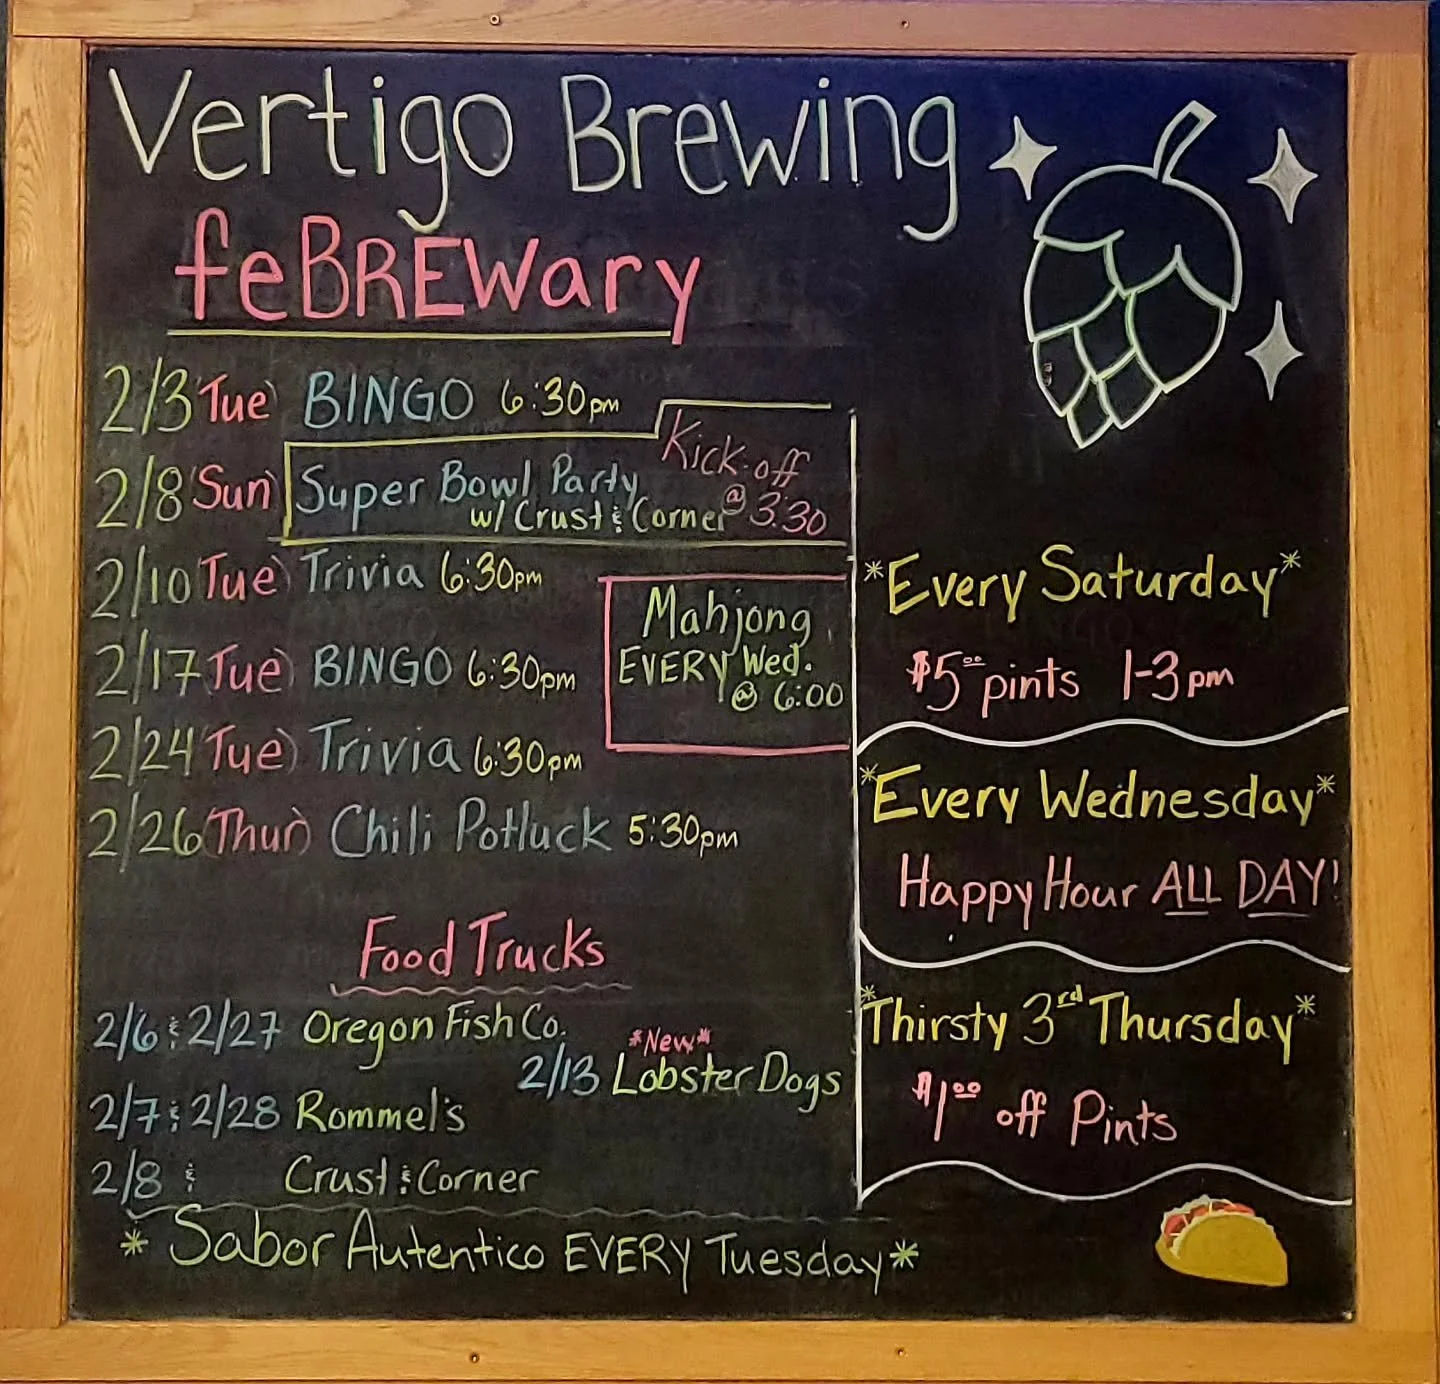 Vertigo Brewing
feBREWary
2/3 (Tue) BINGO 6:30pm
2/8 (Sun) Super Bowl Party
w/ Crust & Corner
Kick-off
@ 3:30
2/10 (Tue) Trivia 6:30pm
2/17 (Tue) BINGO 6:30pm
2/24 (Tue) Trivia 6:30pm
2/26 (Thur) Chili Potluck 5:30pm
Mahjong
EVERY Wed.
@ 6:00
Food Trucks
2/6 & 2/27 Oregon Fish Co.
*New*
2/13 Lobster Dogs
2/7 & 2/28 Rommel's
2/8 & Crust & Corner
* Sabor Autentico EVERY Tuesday *
*Every Saturday*
$5.00 pints 1-3pm
*Every Wednesday*
Happy Hour ALL DAY!
*Thirsty 3rd Thursday*
$1.00 off Pints